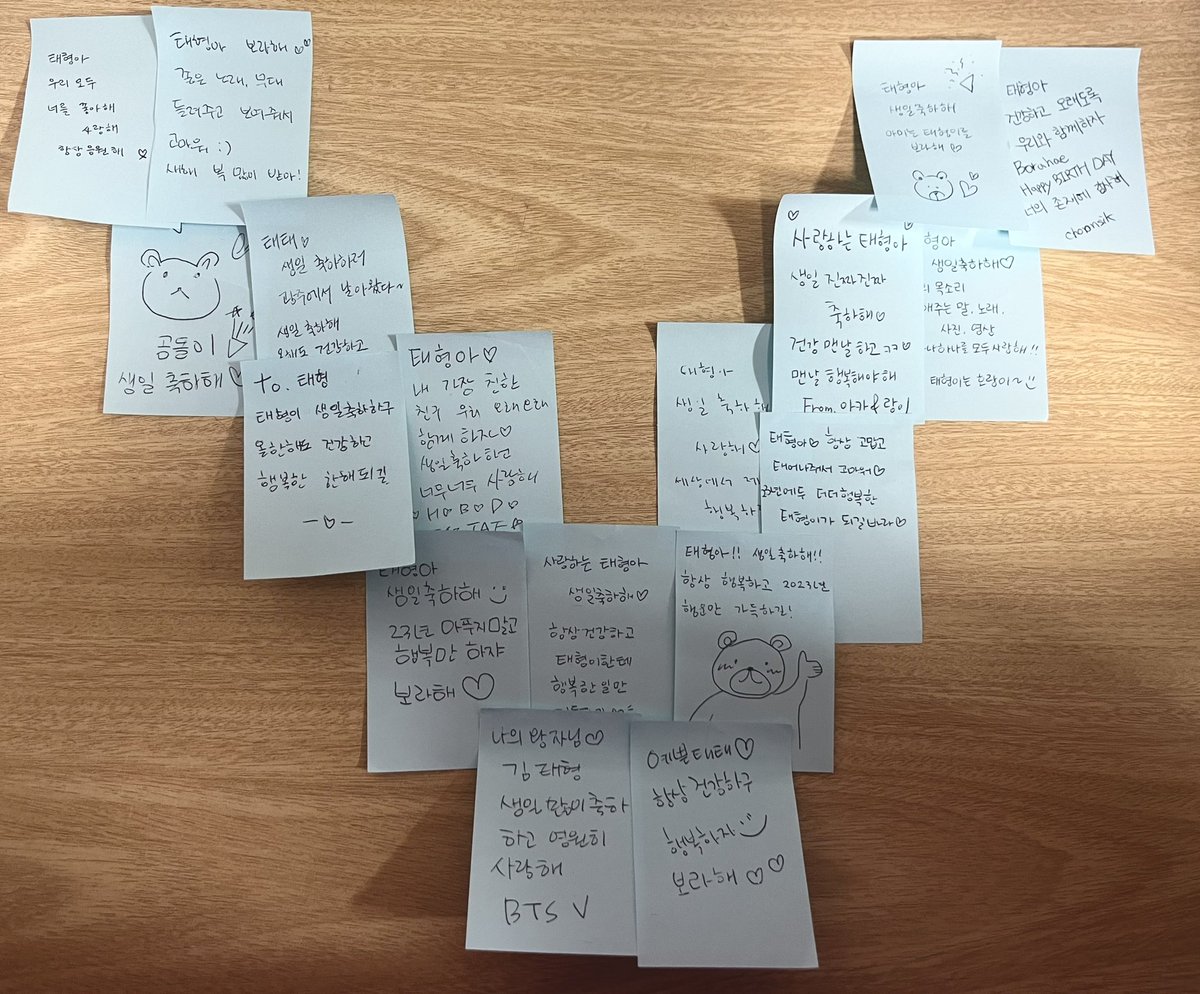 태형아
우리 모두
너를 좋아해
사랑해
항상 응원해 ♡
태형아 보라해 ♡♡
좋은 노래, 무대
들려주고 보여줘서
고마워 :)
새해 복 많이 받아!
곰돌이
생일 축하해 ♡
태태 ♡
생일 축하하러
광주에서 날아왔다~
생일 축하해
오래도 건강하고
To. 태형
태형이 생일축하하구
올한해도 건강하고
행복한 한해되길
-♡-
태형아 ♡
내 가장 친한
친구 우리 오래오래
함께 하자 ♡
생일축하 하고
너무너무 사랑해
♡ H ♡ B ♡ D ♡
태형아
생일축하해
23년도 아푸지말고
행복만 하쟈
보라해 ♡
사랑하는 태형아
생일축하해 ♡
항상 건강하고
태형이한테
행복한 일만
태형아!! 생일축하해!!
항상 행복하고 2023년
행운만 가득하길!
나의 왕자님 ♡
김태형
생일 많이 축하
하고 영원히
사랑해
BTS V
예쁜 태태 ♡
항상 건강하구
행복하자
보라해 ♡ ♡
태형아
생일 축하해
사랑해 ♡
세상에서 제
행복하
태형아 ♡ 항상 고맙고
태어나줘서 고마워 ♡
23년에두 더더 행복한
태형이가 되길바라 ♡
사랑하는 태형아
생일 진짜진짜
축하해 ♡
건강 맨날 하고 ㅋㅋ ♡
맨날 행복해야해
From. 아카&랑이
형아
생일축하해 ♡
의 목소리
해주는 말, 노래,
사진, 영상
나하나를 모두 사랑해!!
태형이는 호랑이~
태형아
생일축하해
아미는 태형이를
보라해 ♡
태형아
건강하고 오래도록
우리와 함께하자
Borahae
Happy BIRTH DAY
너의 존재에 감사해
choonsik